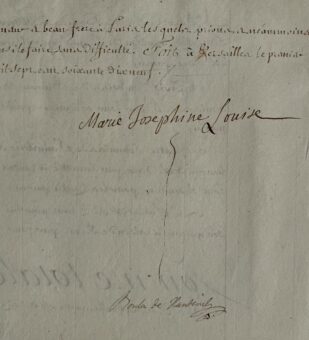 a beau frere à Paris lesquels prions a neammoins
le faire sans difficulté. Fait à Versailles le premier
il sept cen soixante dixneuf.
Marie Josephine Louise
de